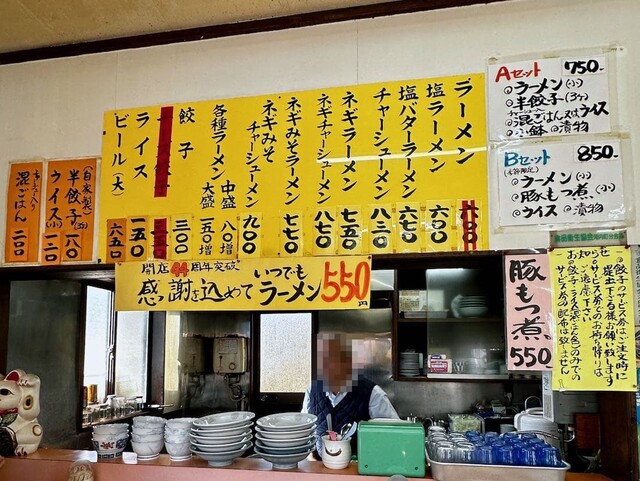 ラーメン 六〇〇
塩ラーメン 六〇〇
塩バターラーメン 六七〇
チャーシューメン 八三〇
ネギラーメン 七五〇
ネギチャーシューメン 八七〇
ネギみそラーメン 七七〇
ネギみそチャーシューメン 九〇〇
各種ラーメン 中盛 八〇増
大盛 一五〇増
餃子 三〇〇
ライス 一五〇
ビール(大) 六五〇
Aセット 750-
◎ラーメン(小)
◎半餃子(3ケ)
◎混ごはん又はライス
◎小鉢 ◎漬物
Bセット 850-
◎ラーメン(小)
◎豚もつ煮(小)
◎ライス ◎漬物
(自家製)
半餃子(3ケ) 一八〇
ライス(小) 一〇〇
チャーシュー入り
混ごはん 二〇〇
開店44周年突破
感謝を込めていつでもラーメン550円
豚もつ煮
550
◎餃子のサービス券はご注文時に
提出下さる様お願い致します